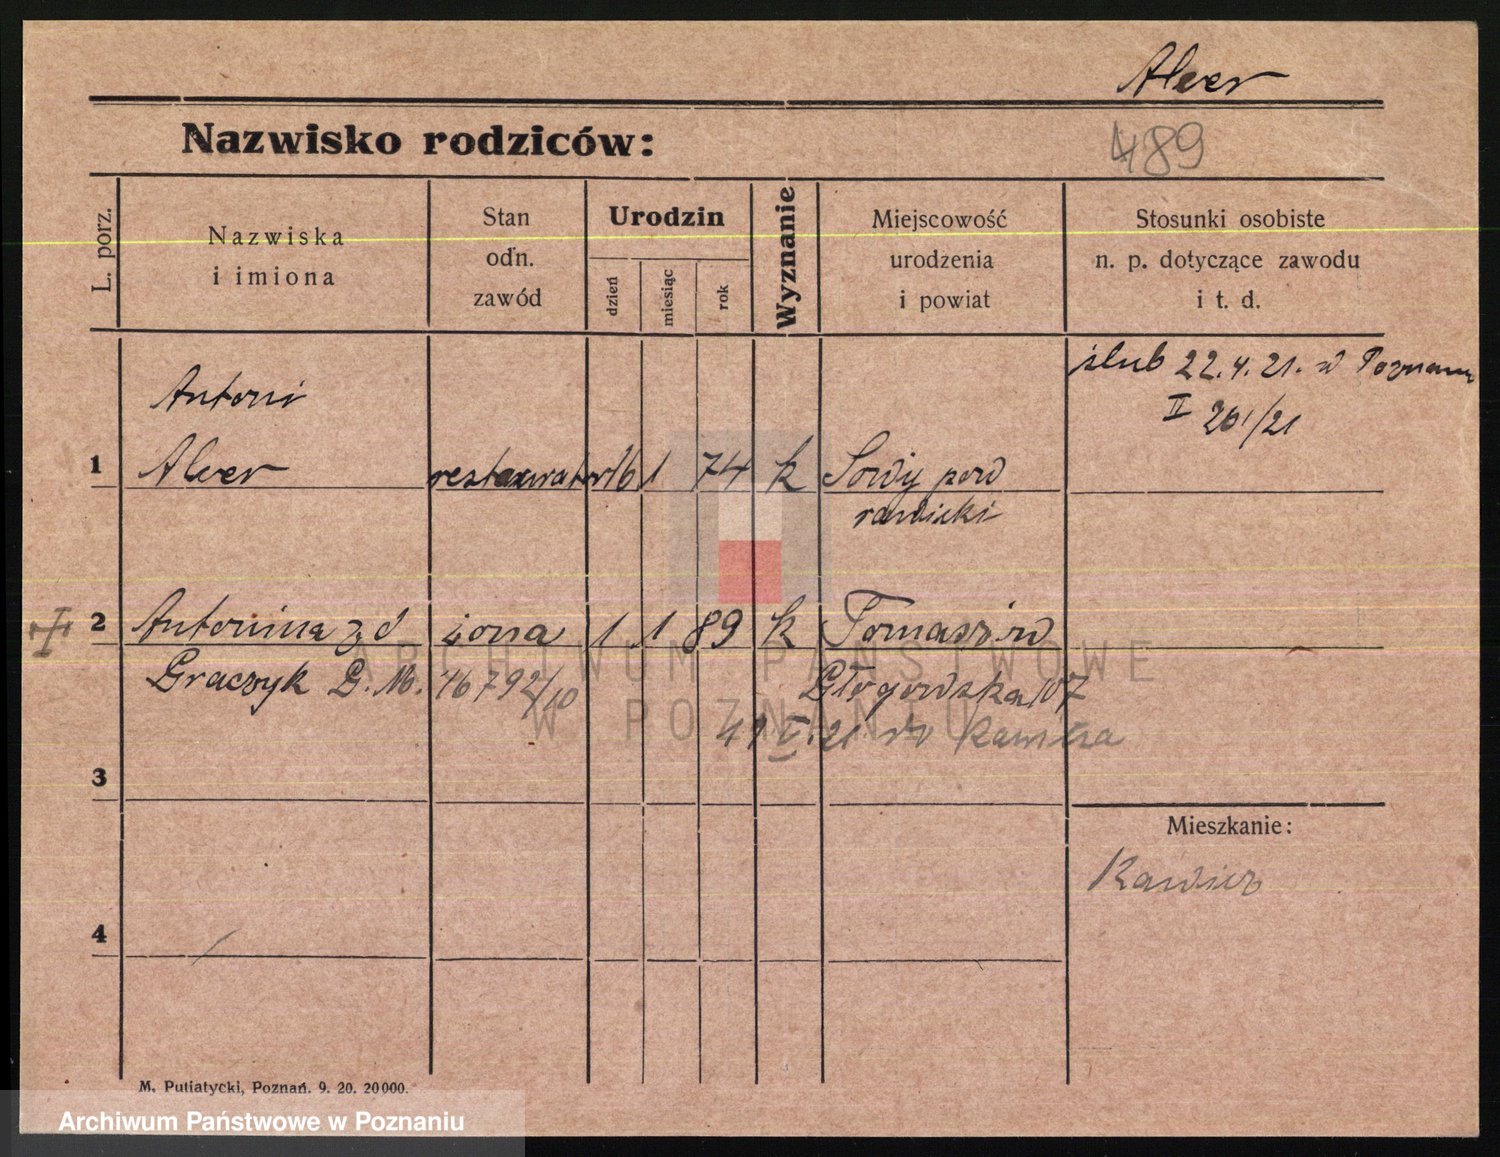 Alver
Nazwisko rodziców:
489
L. porz.
Nazwiska
i imiona
Stan
odn.
zawód
Urodzin
dzień
miesiąc
rok
Wyznanie
Miejscowość
urodzenia
i powiat
Stosunki osobiste
n. p. dotyczące zawodu
i t. d.
ślub 22.4.21. w Poznaniu
II 201/21
Antoni
1 Alver restaurator 16 1 74 k Sowy pow
rawicki
2 Antonina z d żona 1 1 89 k Tomaszów
Graczyk G. M. 16792/10 Głogowska 107
21 Rawicza
3
Mieszkanie:
Rawicz
4
M. Putiatycki, Poznań. 9. 20. 20000.
ARCHIWUM PAŃSTWOWE
W POZNANIU
Archiwum Państwowe w Poznaniu